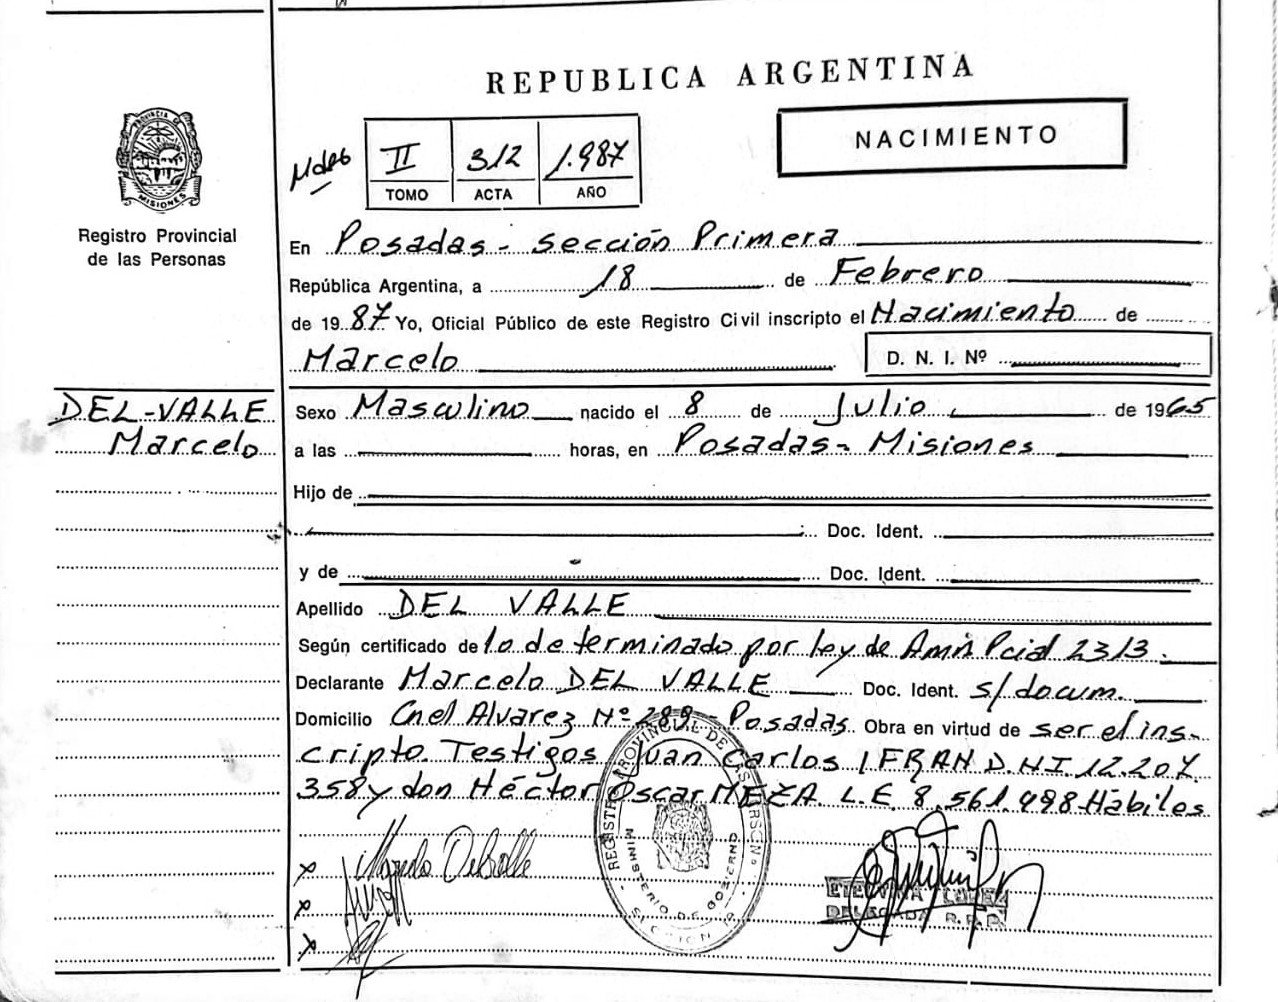 REPUBLICA ARGENTINA
NACIMIENTO
II 312 1.987
TOMO ACTA AÑO
PROVINCIA DE MISIONES
Registro Provincial
de las Personas
En Posadas - Sección Primera
República Argentina, a 18 de Febrero
de 1987 Yo, Oficial Público de este Registro Civil inscripto el Nacimiento de
Marcelo D. N. I. Nº
DEL-VALLE
Marcelo
Sexo Masculino nacido el 8 de Julio de 1965
a las horas, en Posadas - Misiones
Hijo de
Doc. Ident.
y de Doc. Ident.
Apellido DEL VALLE
Según certificado de lo determinado por ley de Pcial 2313.
Declarante Marcelo DEL VALLE Doc. Ident. s/docum.
Domicilio Cnel Alvarez Nº 289 - Posadas. Obra en virtud de ser el ins-
cripto. Testigos Juan Carlos IFRAN D.N.I 12.207.
358 y don Héctor Oscar MEZA L.E 8.561.498 Hábiles
REGISTRO PROVINCIAL DE LAS PERSON.
MINISTERIO DE GOBIERNO
SECCION 1ª
LOPEZ
DELEGADA R.P.P.